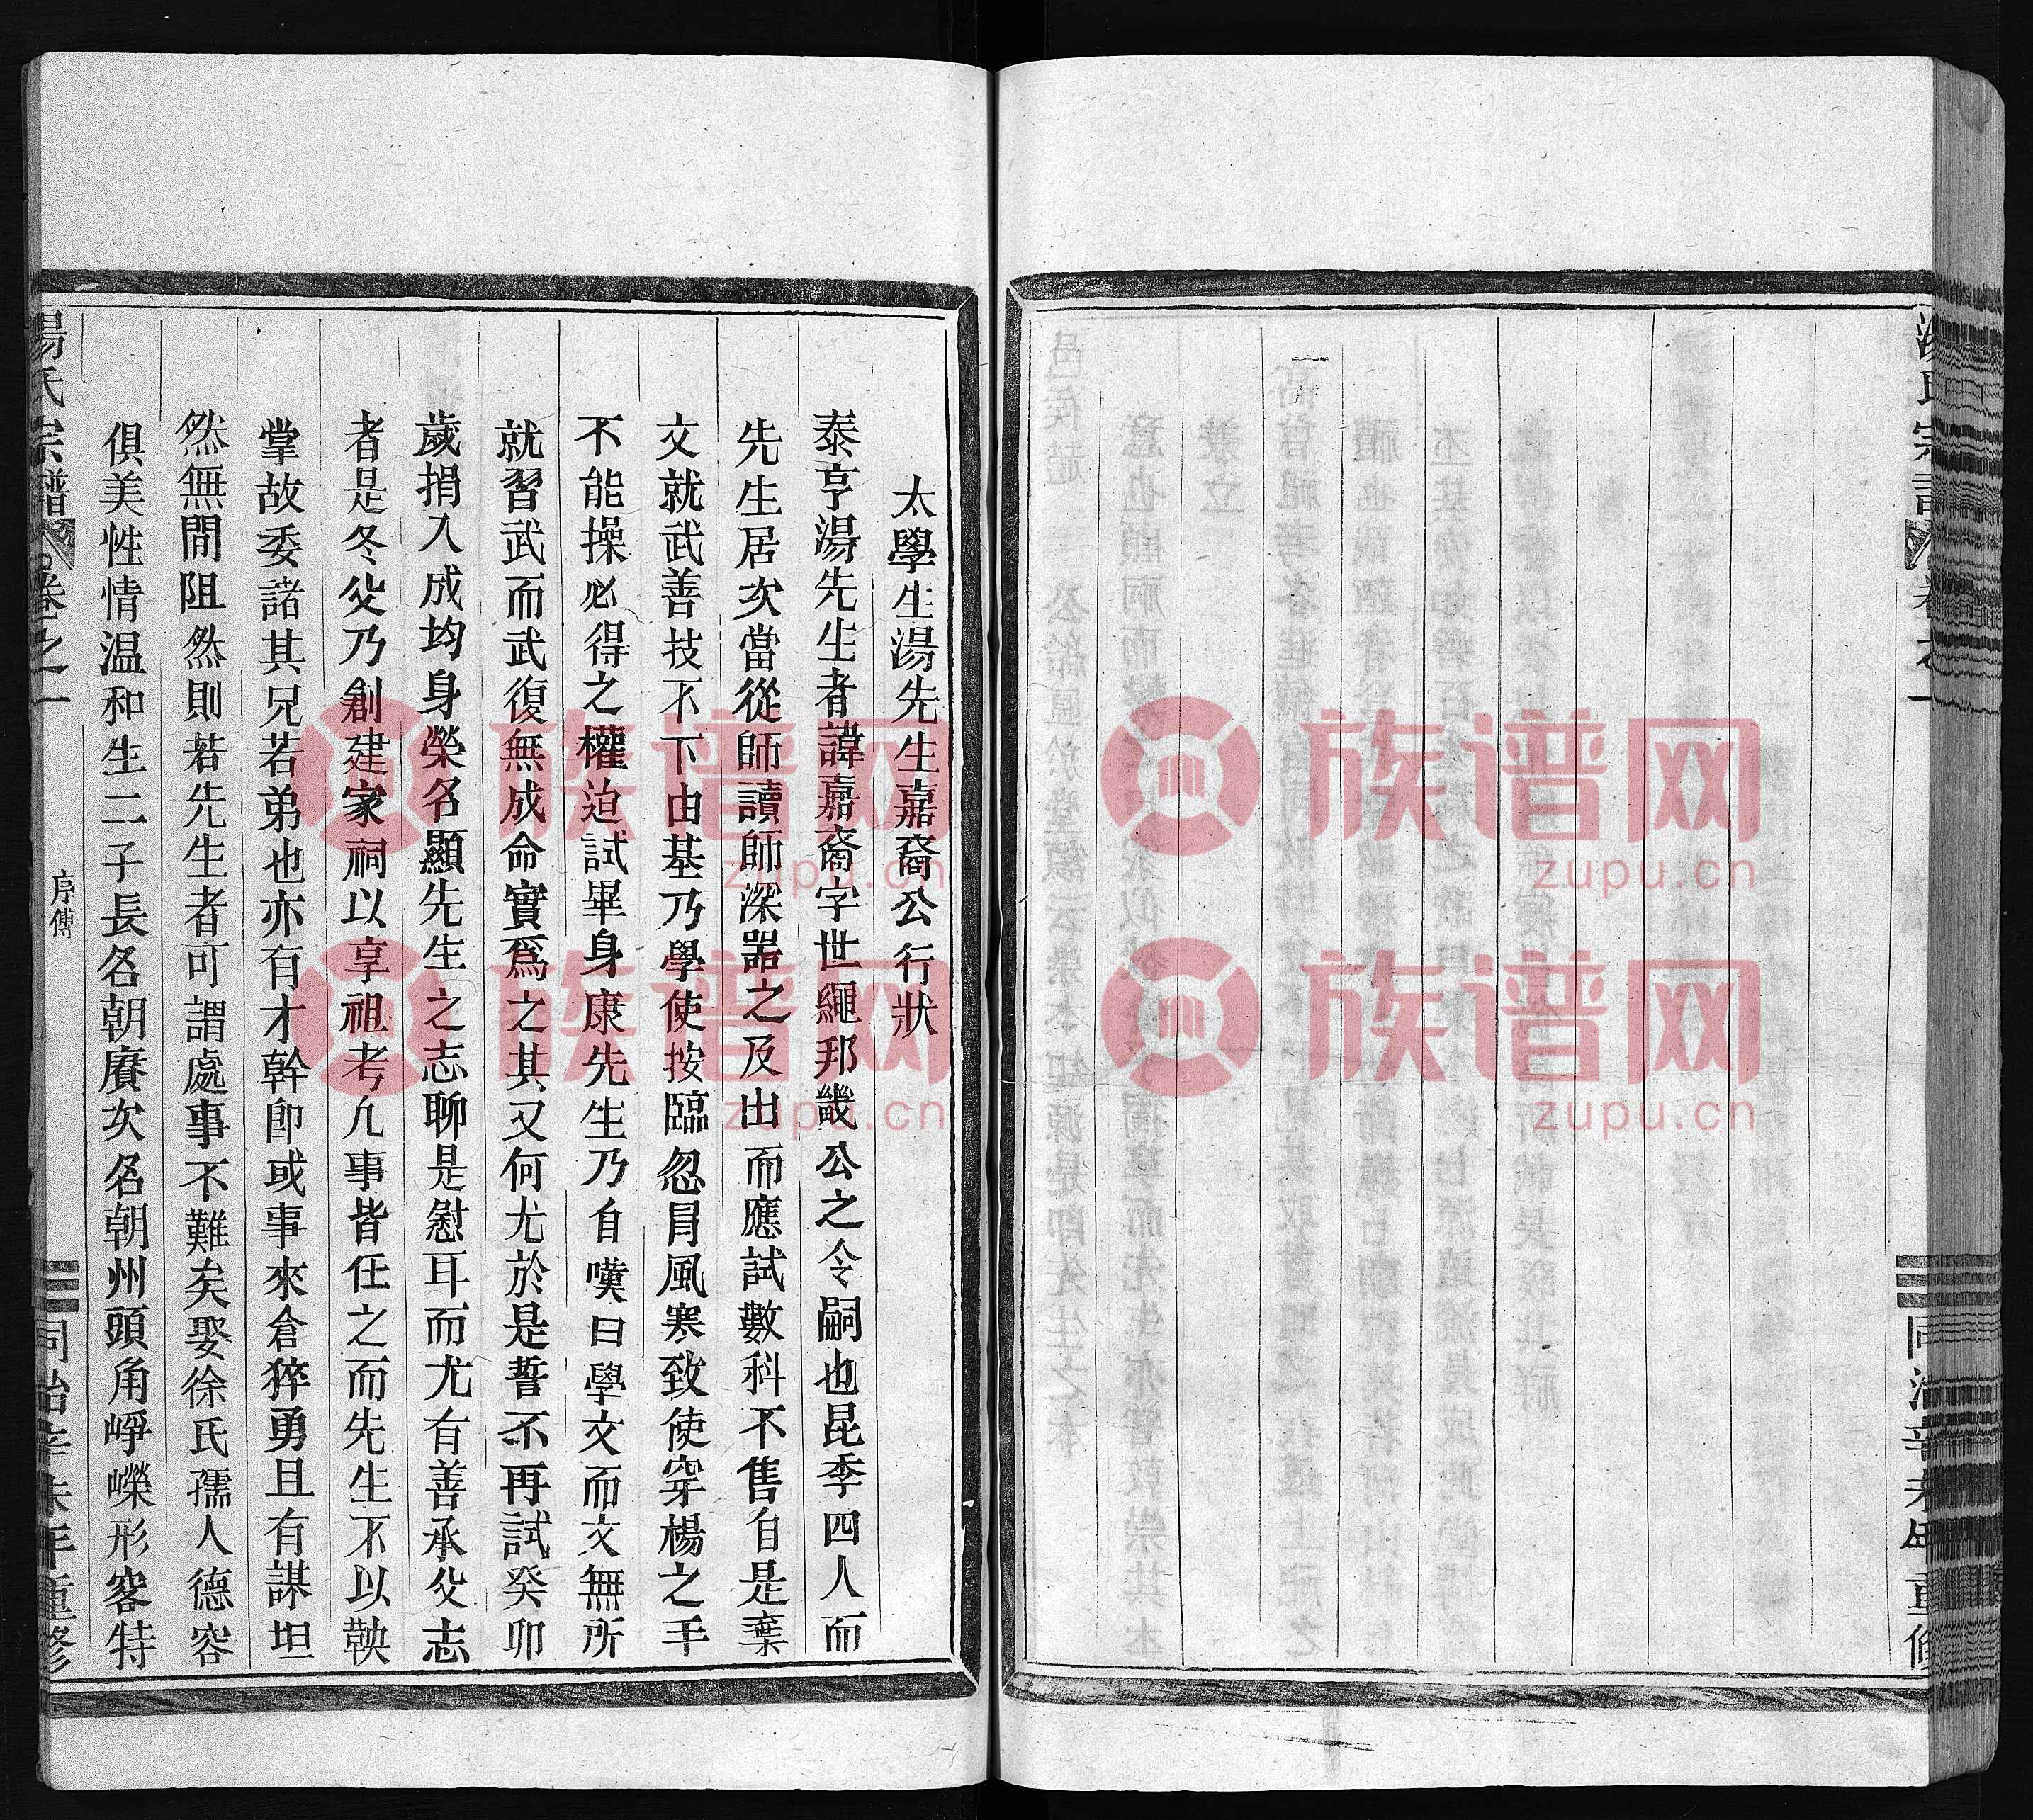 太學生湯先生嘉裔公行狀
泰亨湯先生者諱嘉裔字世繩邦畿公之令嗣也昆季四人而
先生居次當從師讀師深器之及出而應試數科不售自是棄
文就武善技不下由基乃學使按臨忽冐風寒致使穿楊之手
不能操必得之權迨試畢身康先生乃自嘆曰學文而文無所
就習武而武復無成命實爲之其又何尤於是誓不再試癸卯
歲捐入成均身榮名顯先生之志聊是慰耳而尤有善承父志
者是冬父乃創建家祠以享祖考凢事皆任之而先生不以鞅
掌故委諸其兄若弟也亦有才幹卽或事來倉猝勇且有謀坦
然無間阻然則若先生者可謂處事不難矣娶徐氏孺人德容
俱美性情温和生二子長名朝賡次名朝州頭角崢嶸形容特
湯氏宗譜 卷之一 序傳 同治辛未年重修
族谱网
zupu.cn
族谱网
zupu.cn
族谱网
zupu.cn
族谱网
zupu.cn